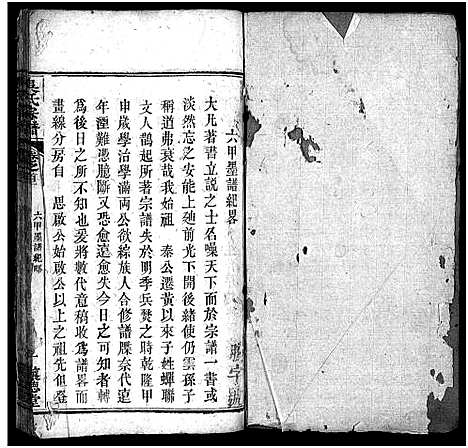 六甲墨譜紀畧
大凡著書立說之士名噪天下而於宗譜一書或
淡然忘之安能上廸前光下開後緒使仍雲孫子
稱道弗衰哉我始祖 秦公遷黃以來子姓蟬聯
文人鵲起所著宗譜失於明季兵燹之時乾隆甲
申歲學治學滿兩公欲綜族人合修譜牒奈代遠
年湮難憑臆斷又恐愈遠愈失今日之可知者轉
為後日之所不知也爰將數代意稿收為譜畧而
畫線分房自 思啟公始啟公以上之祖先但登
六甲墨譜紀畧